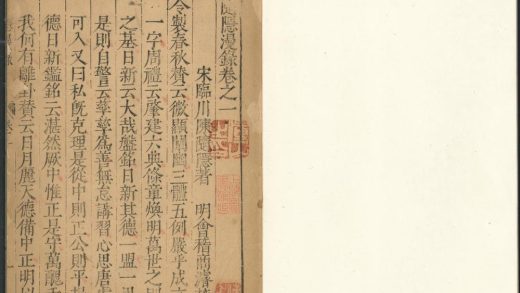 隨隱漫錄卷之一
宋臨川陳隨隱著　明會稽商濬
令製春秋贊云微顯闡幽三體五例嚴乎成
一字周禮云肇建六典條章煥明萬世之
之基日新云大哉盤銘日新其德一盟一
是則自警云孳孳為善無怠講習心思唐
可入又曰私既克理是從中則正公則平
德日新鑑銘云湛然厥中惟正是守萬
我何有離卦贊云日月麗天德備中正明